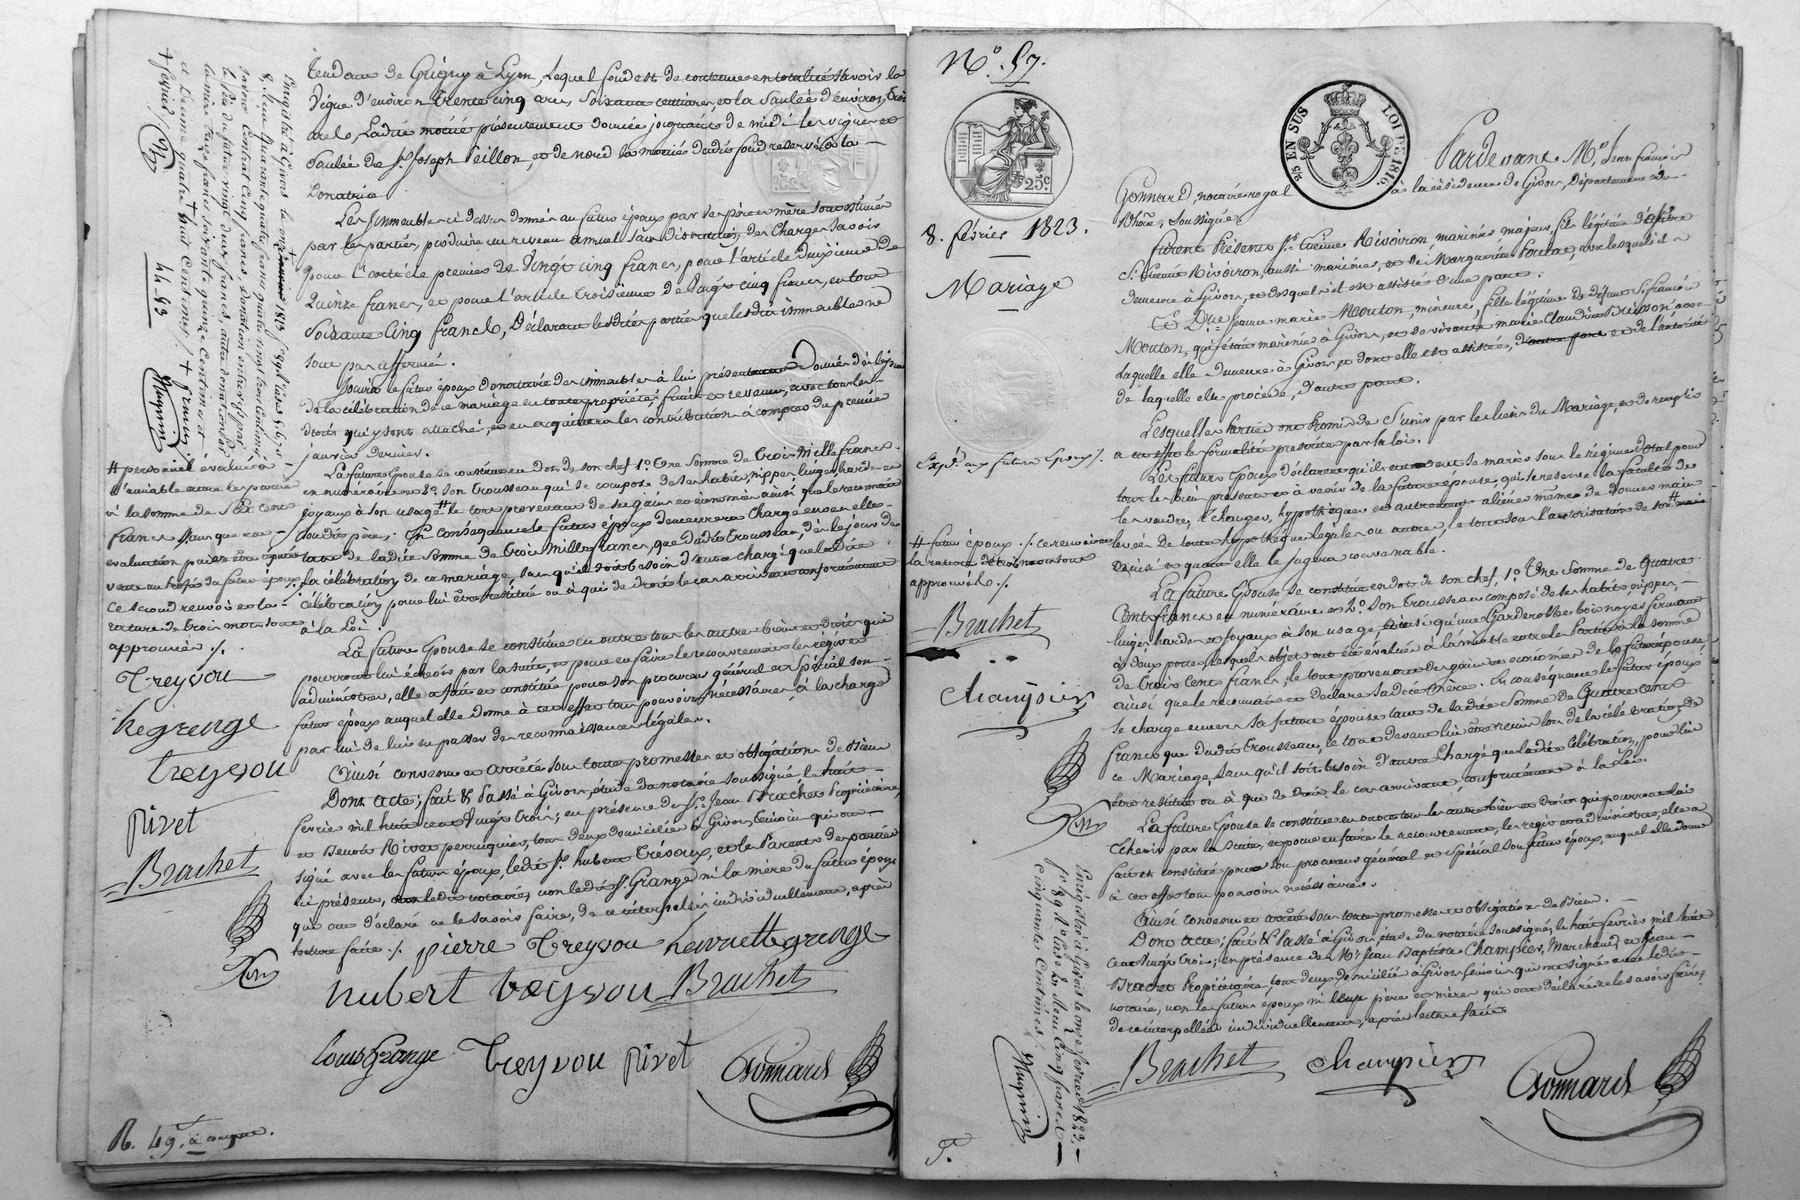 tendant de Grigny à Lyon, lequel fond est de contenue en totalité savoir la
vigne d'environ trente cinq ares, soixante centiares, et la saulée d'environ trois
ares, ladite moitié présentement donnée joignant de midi les vignes et
saulée de Sr Joseph Peillon, et de nord la moitié dudit fond réservée à la
Donatrice.
Les immeubles ci dessus donnés au futur époux par ses père et mère sont estimés
par les parties, produire un revenu annuel sans distraction des charges savoir
pour l'article premier de vingt cinq francs, pour l'article deuxième de
quinze francs, et pour l'article troisième de vingt cinq francs, en tout
soixante cinq francs, Déclarant lesdites parties que lesdits immeubles ne
sont pas affermés.
Jouira le futur époux donataire des immeubles à lui présentement donnés dès le jour
de la célébration de ce mariage en toute propriété, fruits et revenus, avec tous les
droits qui y sont attachés, et en acquittera les contributions à compter du premier
janvier dernier.
La future épouse se constitue en dot de son chef 1° Une somme de trois mille francs
en numéraire et 2° son trousseau qui se compose de ses habits, nippes, linge, hardes et
joyaux à son usage # le tout provenant de ses gains et économies ainsi que le reconnait
sondit père. En conséquence le futur époux demeurera chargé envers elle
tant de ladite somme de trois mille francs, que dudit trousseau, dès le jour de
la célébration de ce mariage, sans qu'il soit besoin d'autre charge que ladite
célébration, pour lui être restitué ou à qui de droit le cas arrivant conformément
à la Loi.
La future épouse se constitue en outre tous les autres biens et droits qui
pourront lui échoir par la suite, et pour en faire le recouvrement, les régir et
administrer, elle a fait et constitué pour son procureur général et spécial son
futur époux auquel elle donne à cet effet tous pouvoirs nécessaires, à la charge
par lui de lui en passer des reconnaissances légales.
Ainsi convenu et arrêté sous toutes promesses et obligations de droit.
Dont acte; fait & Passé à Givors, étude du notaire soussigné, le huit
février mil huit cent vingt trois; en présence de Sr Jean Brachet Propriétaire,
et Benoit Rivet perruquier, tous deux domiciliés à Givors, témoins qui ont
signé avec les futurs époux, ledit Sr hubert Treyvoux, et les Parents des parties
ici présents, et ledit notaire, non ledit Sr Grange ni la mère du futur époux
qui ont déclaré ne le savoir faire, de ce interpellés individuellement, après
lecture faite ./. pierre Treyvou henriette grenge
hubert treyvou Brachet
Louis Grange Treyvou Rivet Gonnard
# personnel évalué à
l'amiable entre les parties
à la somme de Six cent
francs, sans que cette
évaluation puisse être opérée
vente au profit du futur époux
Ce second renvoi et la
rature de trois mots sont
approuvés ./.
Treyvou
he grenge
treyvou
Rivet
Brachet
R. 49. à compte.
44 93
N°. 57.
25c
25 EN SUS LOI DE 1816
8. février 1823.
Mariage
Expé. aux futurs époux /.
# futur époux ./. ce renvoi avec
la rature de trois mots sont
approuvés ./.
Brachet
Champier
Enrégistré à Givors le onze février 1823.
Cinquante Centimes
Pardevant Me. Jean françois
Gonnard, notaire royal à la résidence de Givors, Département du
Rhône, soussigné,
furent Présens Sr. Etienne Rivoiron, marinier, majeur, fils légitime d'autre
Sr. Etienne Rivoiron, aussi marinier, et de Marguerite Poulat, avec lesquels il
demeure à Givors, et desquels il est assisté d'une part.
Et Dlle. pierre marie Mouton, mineure, fille légitime de défunt Sr. françois
Mouton, qui était marinier à Givors, et de vivante marie Claudine Buisson avec
laquelle elle demeure à Givors et dont elle est assistée, d'autre part et de l'autorité
de laquelle elle procède, d'autre part.
Lesquelles parties ont Promis de s'unir par les liens du Mariage, et de remplir
à cet effet les formalités prescrites par la loi.
Les futurs époux déclarent qu'ils entendent se marier sous le régime dotal pour
tous les biens présents et à venir de la future épouse, qui se réserve la faculté de
les vendre, échanger, hypothéquer et autrement aliéner même de donner main
levée de toute hypothèque légale ou autre, le tout sous l'autorisation de son # mari
ainsi et quand elle le jugera convenable.
La future épouse se constitue en dot de son chef, 1°. Une somme de Quatre
Cent francs en numéraire et 2°. son trousseau composé de ses habits, nippes,
linge, hardes et joyaux à son usage, ainsi qu'une Garderobe bois noyer fermant
à deux portes, lesquels objets ont été évalués à l'amiable entre les Parties à la somme
de trois cent francs, le tout provenant des gains et économies de la future épouse,
ainsi que le reconnait et déclare sadite mère. En conséquence le futur époux
se charge envers sa future épouse tant de ladite somme de Quatre cents
francs que dudit trousseau, le tout devant lui être remis lors de la célébration de
ce Mariage, sans qu'il soit besoin d'autre charge que ladite célébration, pour lui
être restitué ou à qui de Droit le cas arrivant, conformément à la Loi.
La future épouse se constitue en outre tous les autres biens et droits qui pourront lui
échoir par la suite, et pour en faire le recouvrement, les régir et administrer, elle a
fait et constitué pour son procureur général et spécial son futur époux, auquel elle donne
à cet effet tous pouvoirs nécessaires.
Ainsi convenu et arrêté sous toutes promesses et obligations de droit.
Dont acte; fait & Passé à Givors, étude du notaire soussigné, le huit février mil huit
cent vingt trois; en présence des Srs. Jean Baptiste Champier, Marchand, et Jean
Brachet Propriétaire, tous deux domiciliés à Givors, témoins qui ont signé avec ledit
notaire, non les futurs époux ni leurs père et mères qui ont déclaré ne le savoir faire,
de ce interpellés individuellement, après lecture faite.
Brachet Champier Gonnard